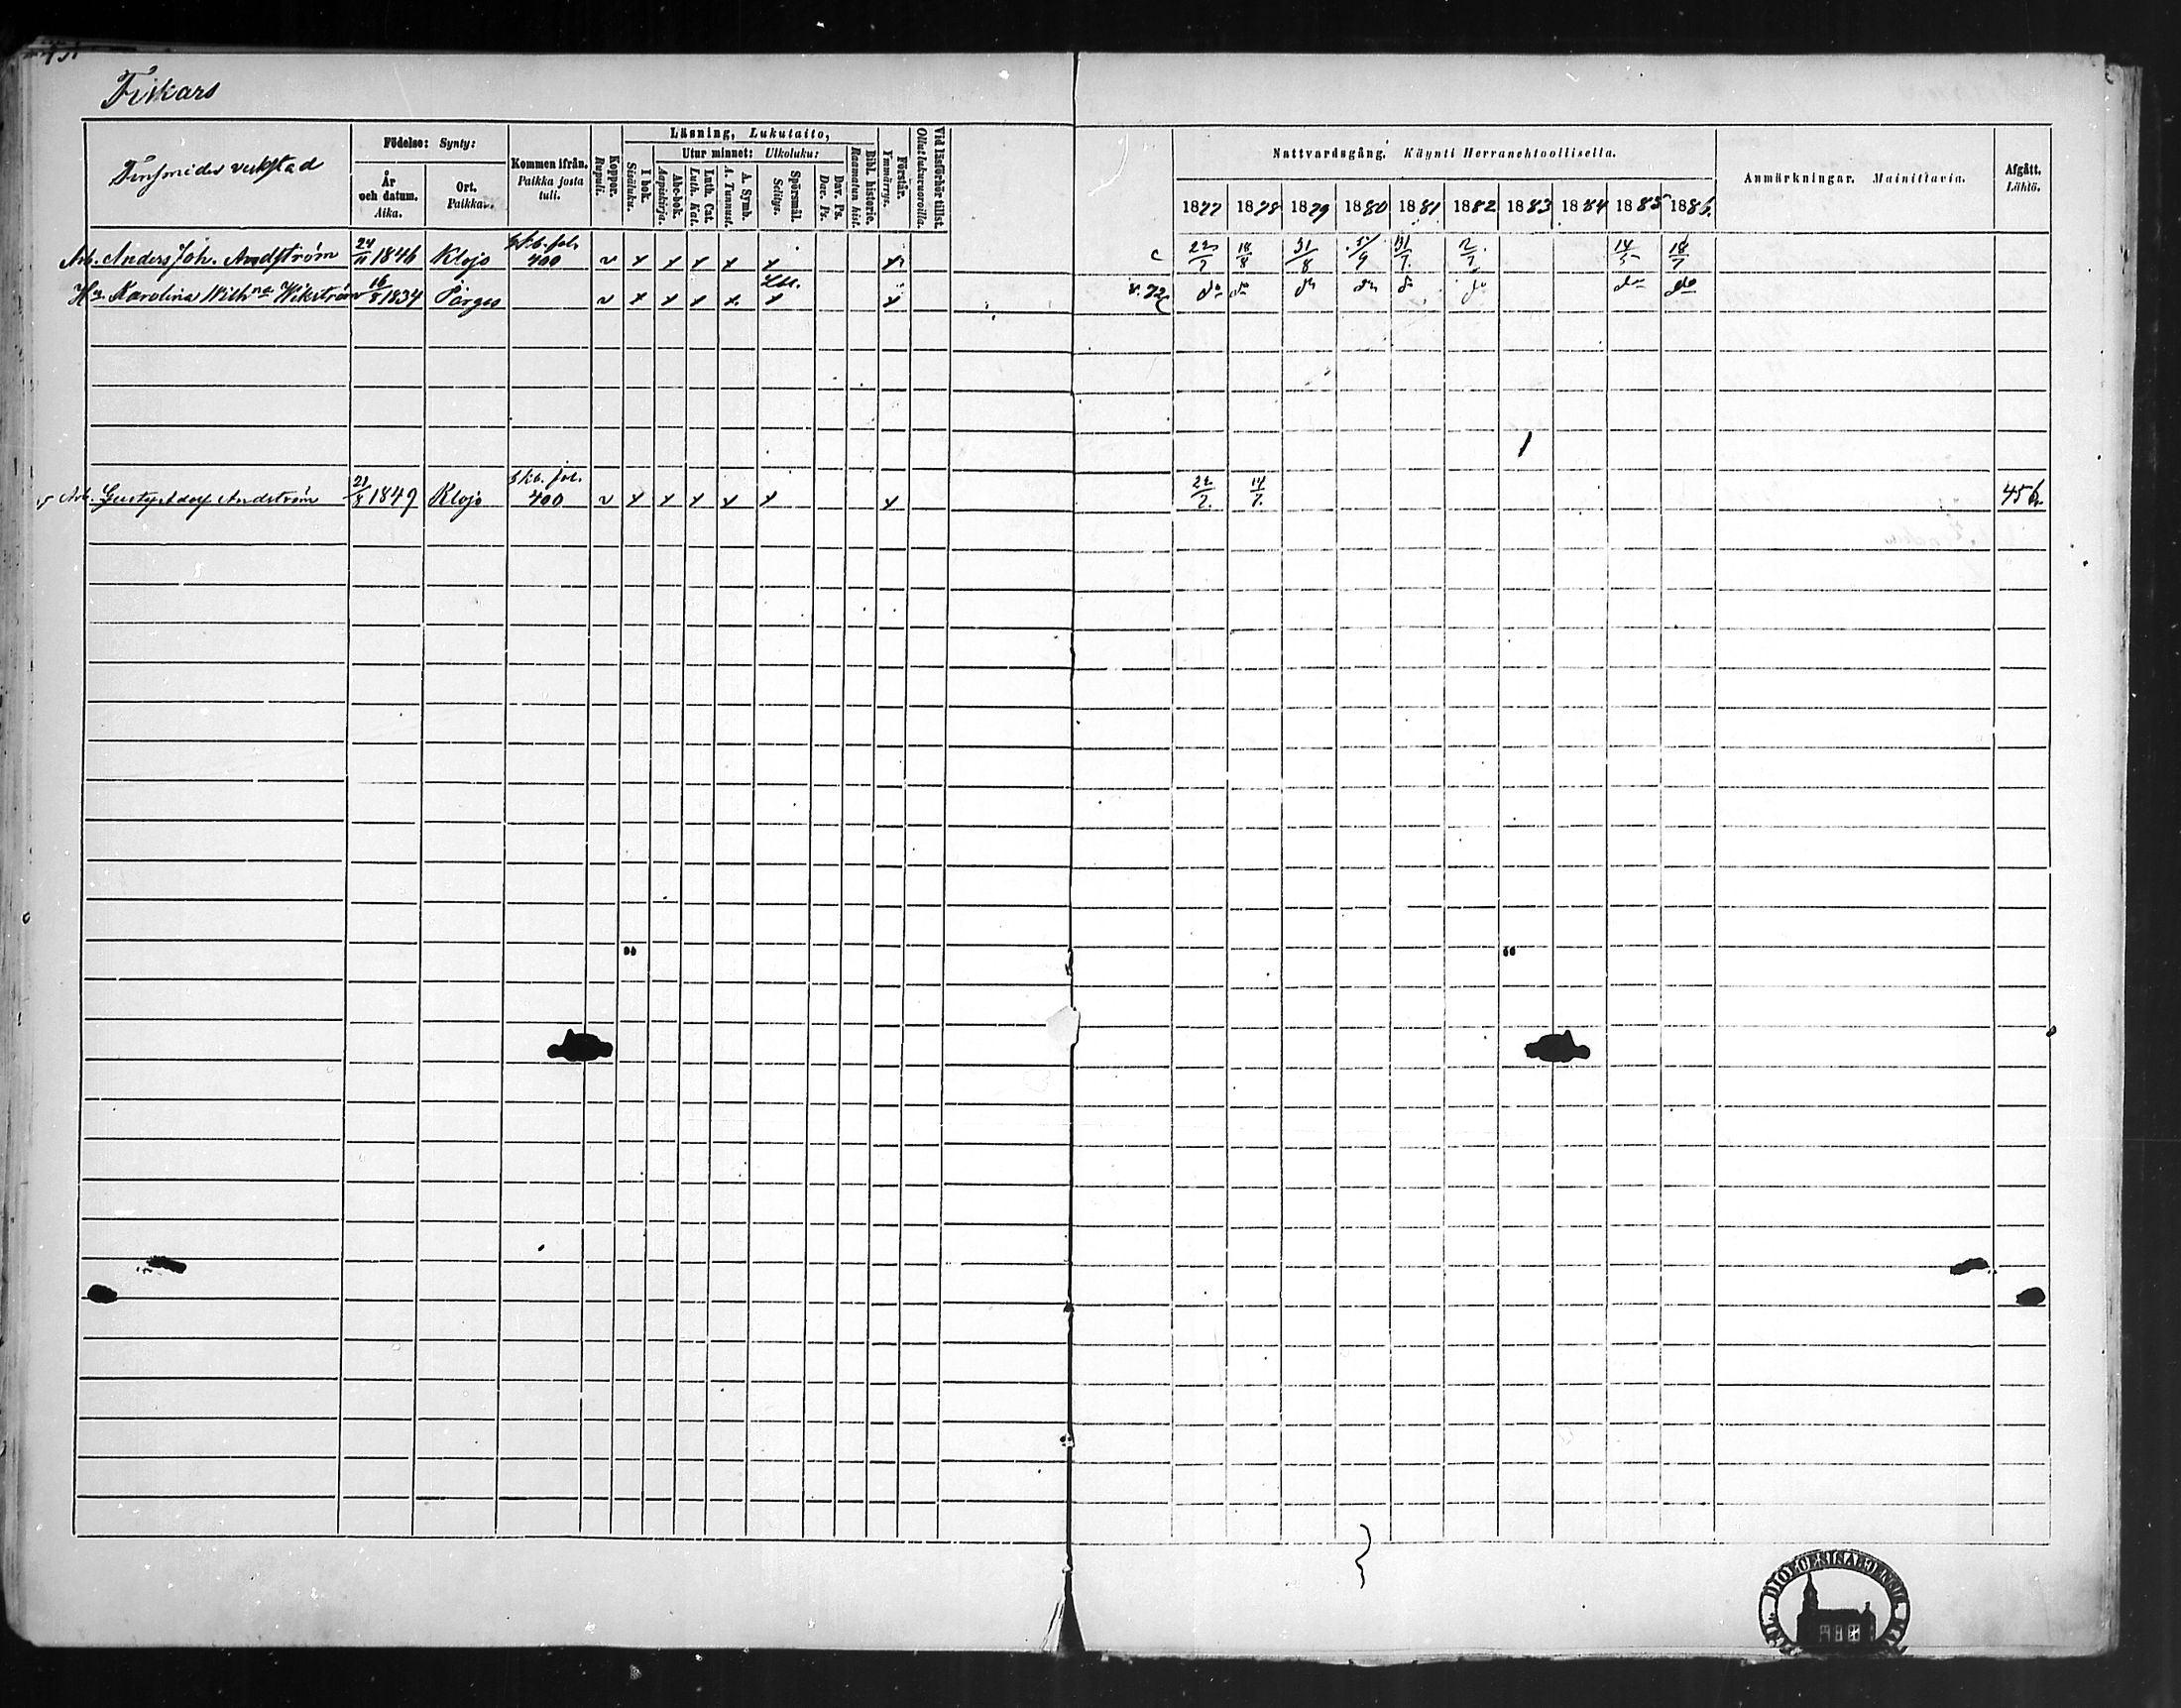 Fiskars
Finsmides verkstad
Födelse: Synty:
År och datum. Aika.
Ort. Paikka.
Kommen ifrån. Paikka josta tuli.
Koppor. Rupuli.
Läsning, Lukutaito,
I bok. Sisäluku.
Utur minnet: Ulkoluku:
Abc-bok. Aapiskirja.
Luth. Cat. Luth. Kat.
A. Symb. A. Tunnust.
Spörsmål. Selitys.
Dav. Ps. Dav. Ps.
Bibl. historie. Raamatun hist.
Förstår. Ymmärrys.
Vid läsförhör tillst. Ollut lukuvuoroilla.
Nattvardsgång. Käynti Herranehtoollisella.
1877 1878 1879 1880 1881 1882 1883 1884 1885 1886.
Anmärkningar. Mainittavia.
Afgått. Lähtö.
Arb. Anders Joh. Andström 24/11 1846 Klojo Skb. fol. 400 v x x x x x x c 22/7 18/8 31/8 31/7. 2/7. 18/7
Hu. Karolina Wilhna Wikström 16/8 1834 Pargas v x x x x x x v. 72 do do do do do do do do
Arb. Gustaf Adolf Andström 21/8 1849 Klojo Skb. fol. 400 v x x x x x x 22/7. 14/7. 456